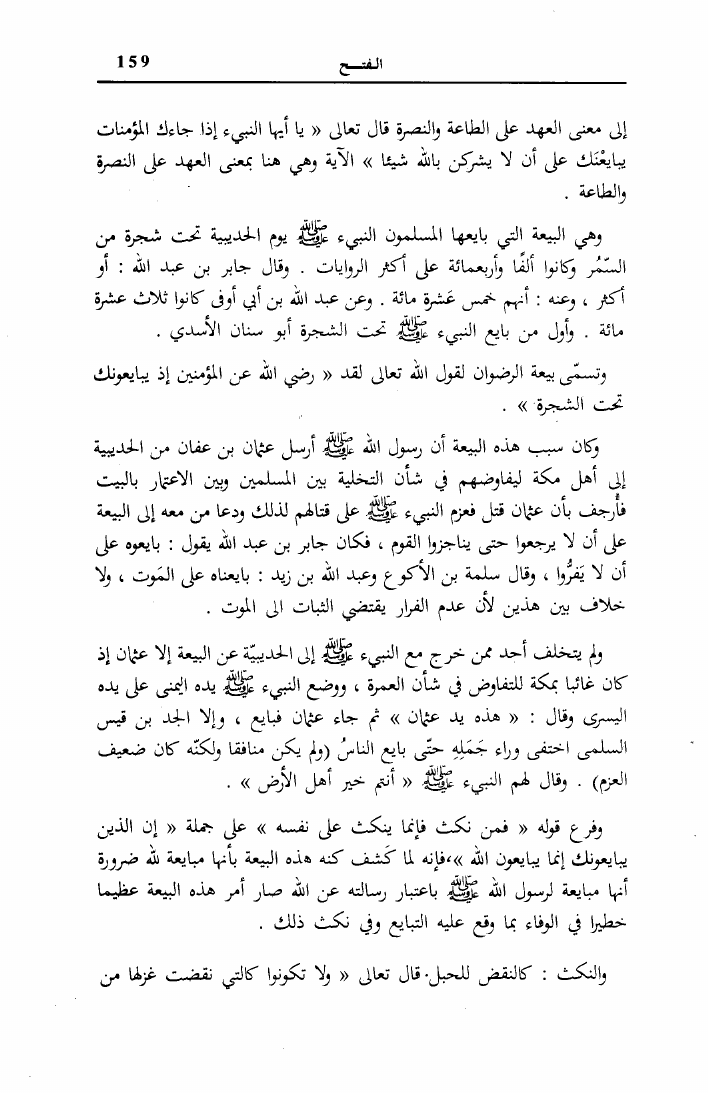 159 الفتح
إلى معنى العهد على الطاعة والنصرة قال تعالى « يا أيها النبيء إذا جاءك المؤمنات
يبايعْنَك على أن لا يشركن بالله شيئا » الآية وهي هنا بمعنى العهد على النصرة
والطاعة .
وهي البيعة التي بايعها المسلمون النبيء ﷺ يوم الحديبية تحت شجرة من
السّمُر وكانوا ألفًا وأربعمائة على أكثر الروايات . وقال جابر بن عبد الله : أو
أكثر ، وعنه : أنهم خمس عَشرة مائة . وعن عبد الله بن أبي أوفى كانوا ثلاث عشرة
مائة . وأول من بايع النبيء ﷺ تحت الشجرة أبو سنان الأسدي .
وتسمّى بيعة الرضوان لقول الله تعالى لقد « رضي الله عن المؤمنين إذ يبايعونك
تحت الشجرة » .
وكان سبب هذه البيعة أن رسول الله ﷺ أرسل عثمان بن عفان من الحديبية
إلى أهل مكة ليفاوضهم في شأن التخلية بين المسلمين وبين الاعتمار بالبيت
فأُرجف بأن عثمان قتل فعزم النبيء ﷺ على قتالهم لذلك ودعا من معه إلى البيعة
على أن لا يرجعوا حتى يناجزوا القوم ، فكان جابر بن عبد الله يقول : بايعوه على
أن لا يَفرُّوا ، وقال سلمة بن الأكوع وعبد الله بن زيد : بايعناه على المَوت ، ولا
خلاف بين هذين لأن عدم الفرار يقتضي الثبات الى الموت .
ولم يتخلف أحد ممن خرج مع النبيء ﷺ إلى الحديبيّة عن البيعة إلا عثمان إذ
كان غائبا بمكة للتفاوض في شأن العمرة ، ووضع النبيء ﷺ يده اليمنى على يده
اليسرى وقال : « هذه يد عثمان » ثم جاء عثمان فبايع ، وإلا الجد بن قيس
السلمى اختفى وراء جَمَلِهِ حتّى بايع الناسُ (ولم يكن منافقا ولكنّه كان ضعيف
العزم) . وقال لهم النبيء ﷺ « أنتم خير أهل الأرض » .
وفرع قوله « فمن نكث فإنما ينكث على نفسه » على جملة « إن الذين
يبايعونك إنما يبايعون الله »، فإنه لما كَشف كنه هذه البيعة بأنها مبايعة لله ضرورة
أنها مبايعة لرسول الله ﷺ باعتبار رسالته عن الله صار أمر هذه البيعة عظيما
خطيرا في الوفاء بما وقع عليه التبايع وفي نكث ذلك .
والنكث : كالنقض للحبل. قال تعالى « ولا تكونوا كالتي نقضت غزلها من